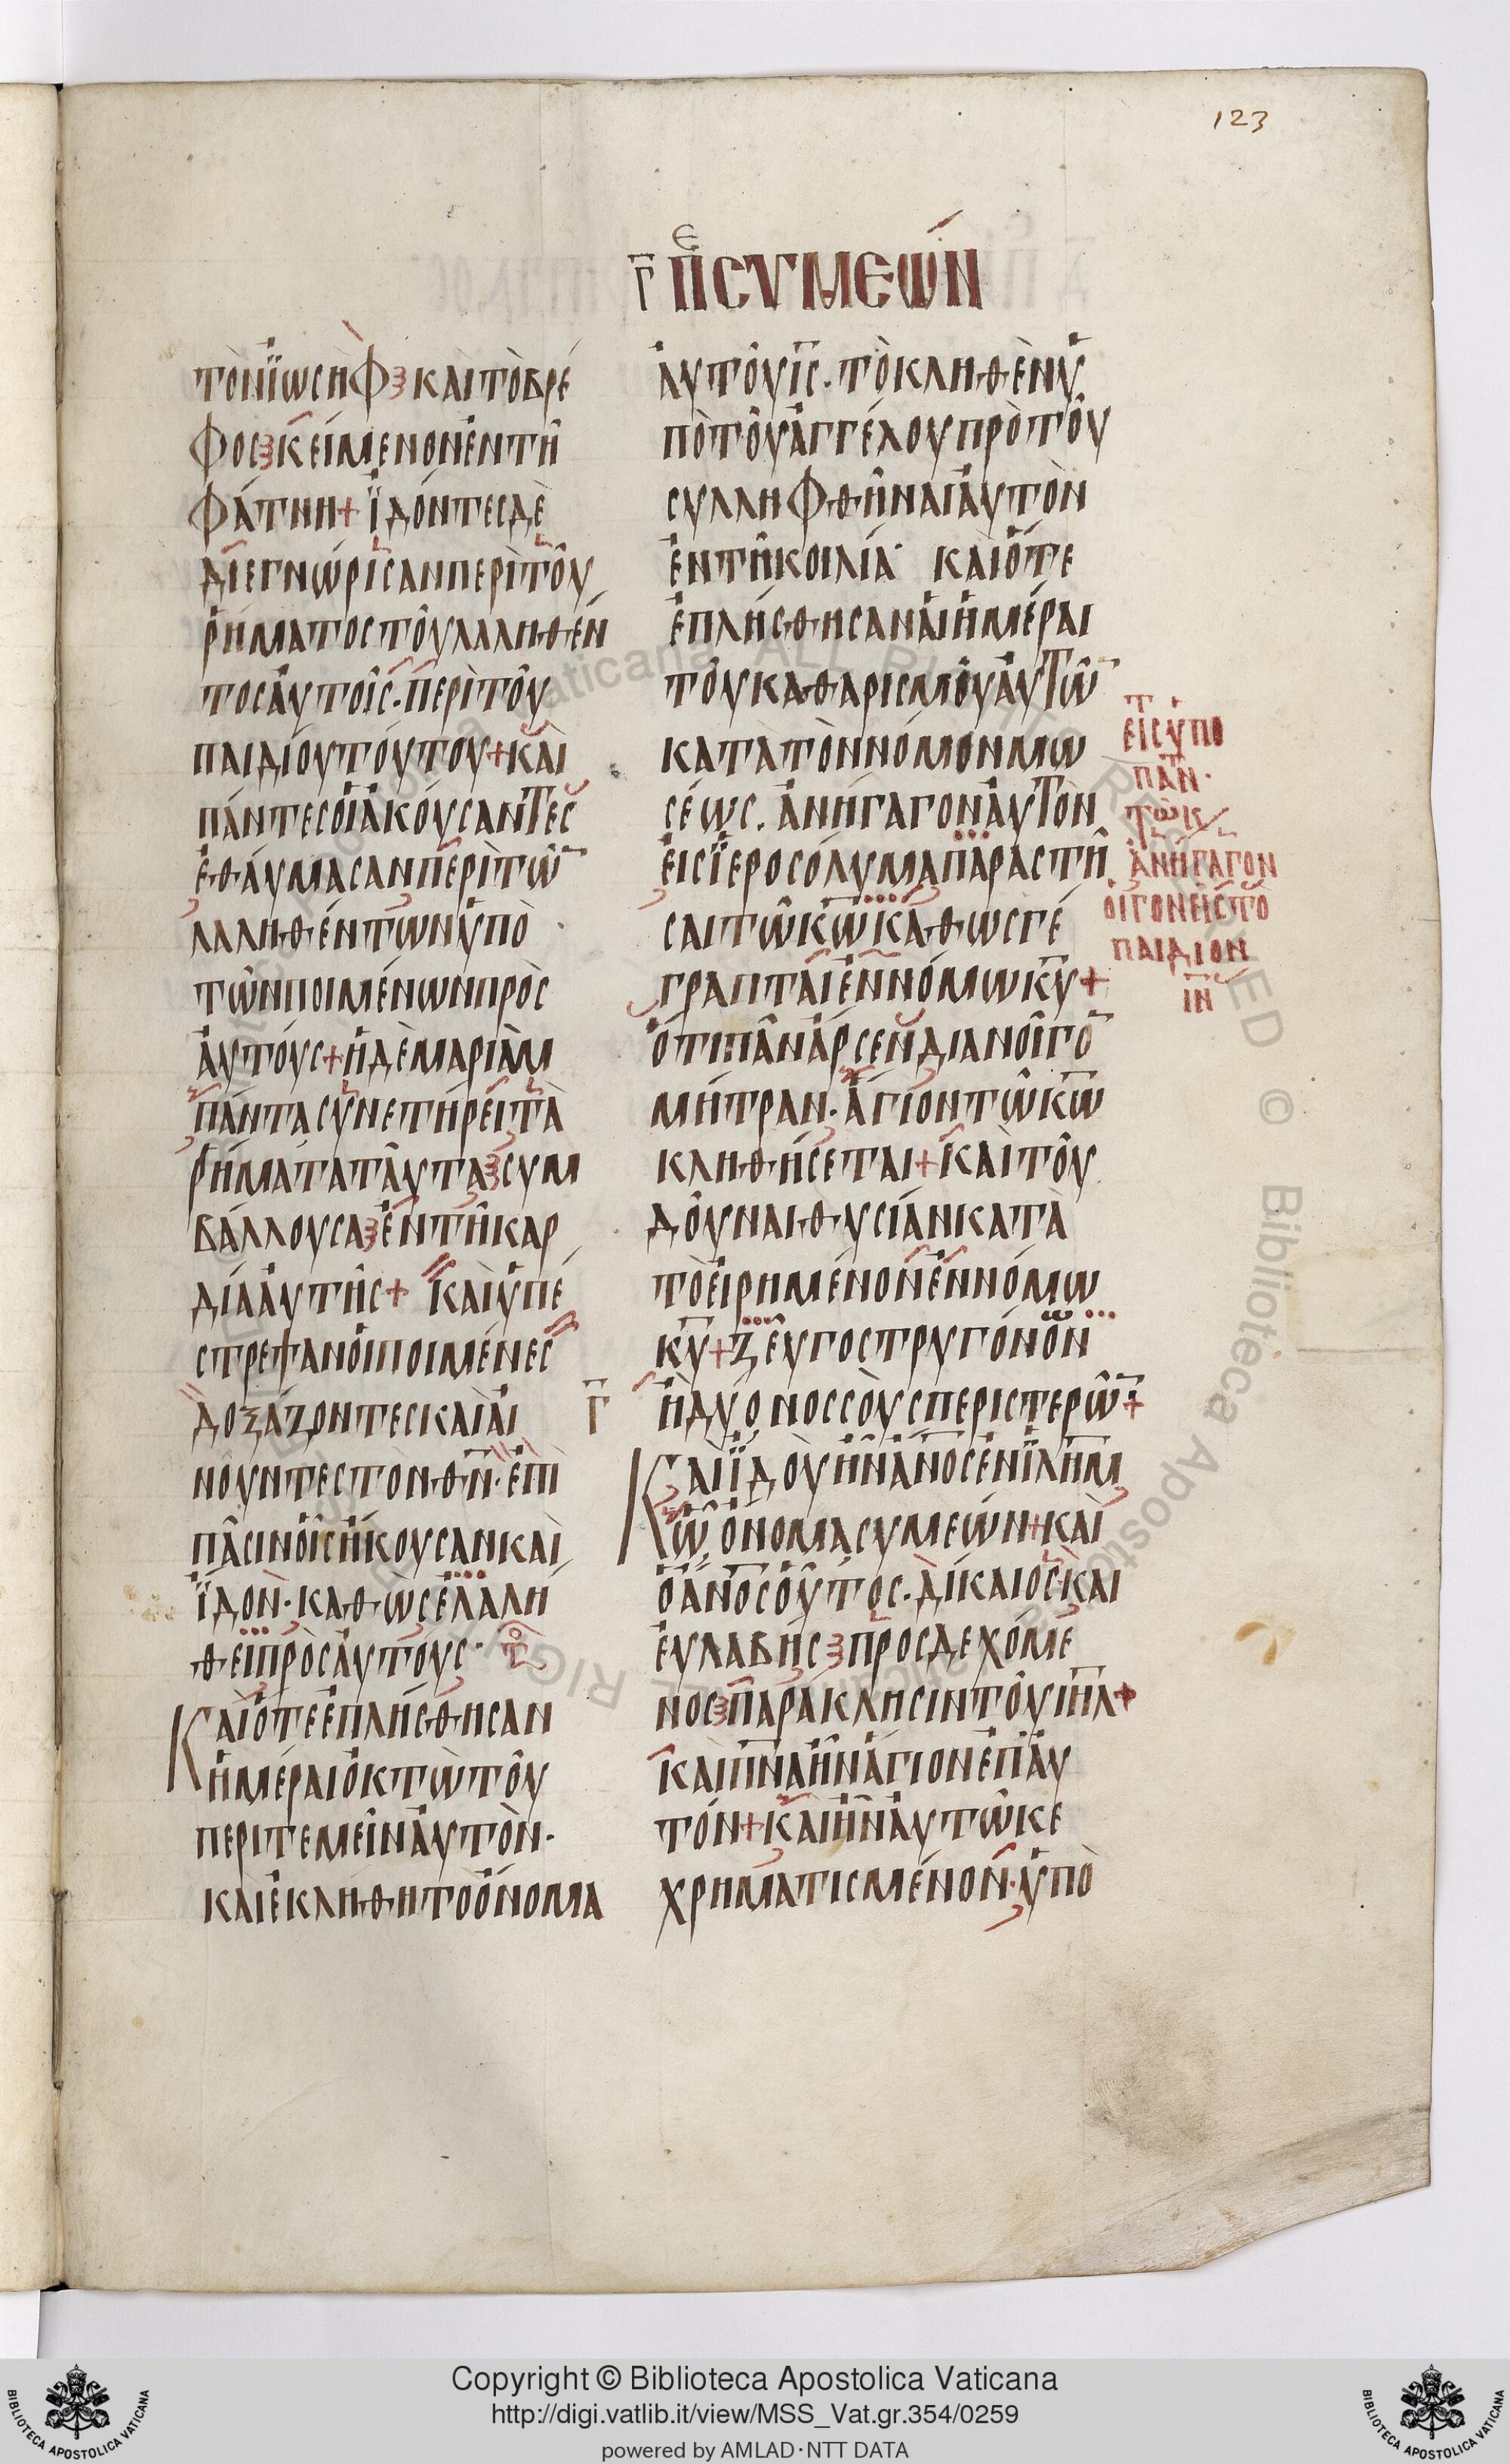 123
Γ̅ ΠΕ ΣΥΜΕῶΝ
τὸν ϊωσὴφ καὶ τὸ βρέ
φος κείμενον ἐν τῆ
φάτνη + ϊδόντες δὲ
διεγνώρισαν περὶ τοῦ
ῥήματος τοῦ λαληθέν
τος ἀυτοῖς · περὶ τοῦ
παιδίου τούτου + καὶ
πάντες ὁι ἀκούσαντες
ἐθάυμασαν περὶ τῶ̅
λαληθέντων ὑπὸ
τῶν ποιμένων πρὸς
ἀυτόυς + ἡ δὲ μαριὰμ
πάντα συνετήρει τὰ
ῥήματα ταῦτα συμ
βάλλουσα ἐν τῆ καρ
δία ἀυτῆς + καὶ ὑπέ
στρεψαν ὁι ποιμένες
δοξάζοντες καὶ ἀι
νοῦντες τον θ̅ν̅ · ἐπὶ
πᾶσιν ὁῖς ἤκουσαν καὶ
ϊδον · καθὼς ἐλαλή
θει πρὸς ἀυτόυς · τ̅ε̅
Καὶ ὅτε ἐπλήσθησαν
ἡμέραι ὀκτὼ τοῦ
περιτεμεῖν ἀυτὸν ·
καὶ ἐκλήθη τὸ ὄνομα
ἀυτοῦ ι̅ς̅ · τὸ κληθὲν ὑ
πὸ τοῦ ἀγγέλου πρὸ τοῦ
συλληφθῆναι ἀυτὸν
ἐν τῆ κοιλία · καὶ ὅτε
ἐπλήσθησαν ἁι ἡμέραι
τοῦ καθαρισμοῦ ἀυτῶ̅
κατὰ τὸν νόμον μω
σέως . ἀνήγαγον ἀυτὸν
ἐις ϊεροσόλυμα παραστῆ
σαι τῶ κ̅ω̅ καθως γέ
γραπται ἐν νόμω κ̅υ̅ +
ὅτι πᾶν ἄρσεν διανοῖγο̅
μήτραν · ἅγιον τῶ κ̅ω̅
κληθήσεται + καὶ τοῦ
δοῦναι θυσίαν κατὰ
τὸ ἐιρημένον ἐν νόμω
κ̅υ̅ + ζεῦγος τρυγόνων
ἢ δύο νοσσὸυς περιστερῶ̅ +
Γ̅
Καὶ ϊδὸυ ἦν α̅ν̅ο̅ς̅ ἐν ϊ̅λ̅η̅μ̅
ὧ ὄνομα συμεὼν + καὶ
ὁ α̅ν̅ο̅ς̅ ὁῦτος · δίκαιος καὶ
ἐυλαβής προσδεχόμε
νος παράκλησιν τοῦ ι̅η̅λ̅ +
καὶ π̅ν̅α̅ ἦν ἅγιον ἐπ ἀυ
τόν + καὶ ἦν ἀυτῶ κε
χρηματισμένον · ὑπὸ
ἐις ὑπο
παν ·
τω κ
ἀνήγαγον
ὁι γονεῖς τὸ
παιδιον
ι̅ν̅
Copyright © Biblioteca Apostolica Vaticana
http://digi.vatlib.it/view/MSS_Vat.gr.354/0259
powered by AMLAD·NTT DATA
BIBLIOTECA APOSTOLICA VATICANA
BIBLIOTECA APOSTOLICA VATICANA